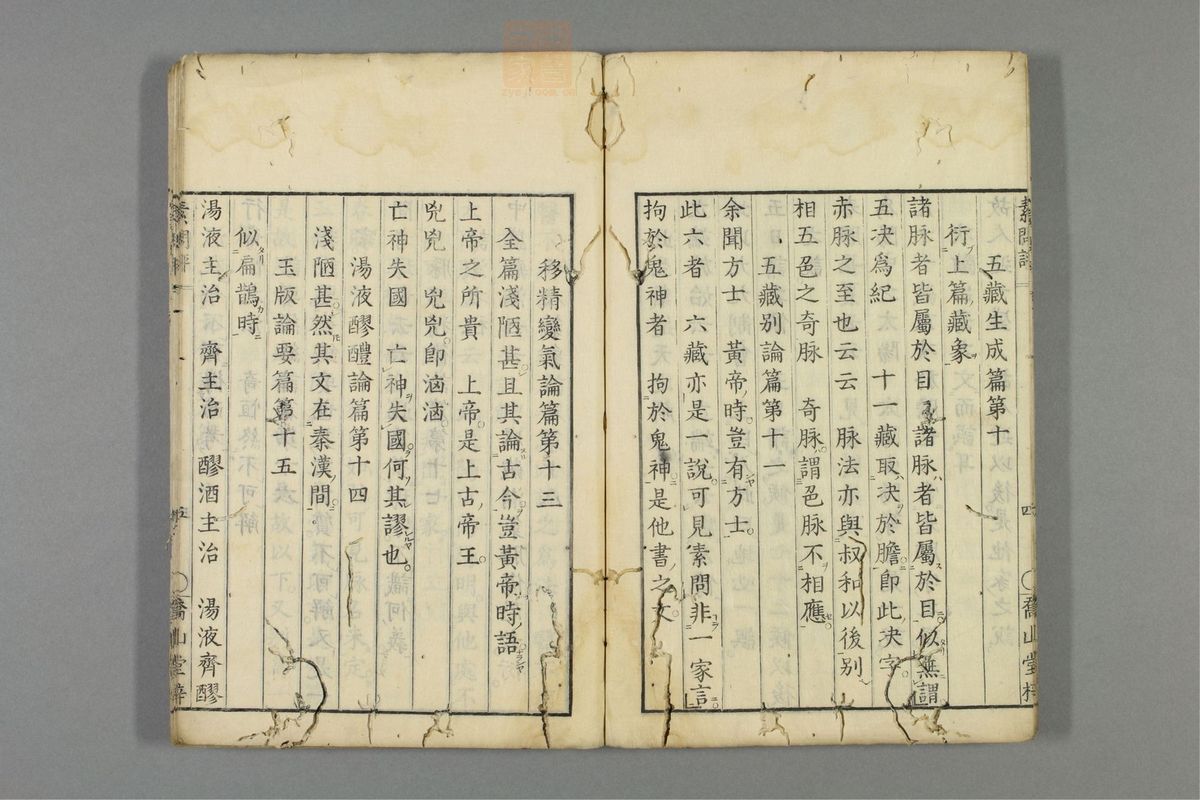 五藏生成篇第十
衍上篇藏象
諸脉者皆屬於目 諸脉者皆屬於目似無謂
五决爲紀 十一藏取决於膽即此决字
赤脉之至也云云 脉法亦與叔和以後别
相五色之奇脉 奇脉謂色脉不相應
五藏别論篇第十一
余聞方士 黃帝時豈有方士
此六者 六藏亦是一說可見素問非一家言
拘於鬼神者 拘於鬼神是他書之文
移精變氣論篇第十三
全篇淺陋甚且其論古今豈黃帝時語
上帝之所貴 上帝是上古帝王
兇兇 兇兇即汹汹
亡神失國 亡神失國何其謬也
湯液醪醴論篇第十四
淺陋甚然其文在秦漢間
玉版論要篇第十五
似扁鵲時
湯液主治 齊主治 醪酒主治 湯液齊醪
素問評
四
喬山堂梓
素問評
五
喬山堂梓